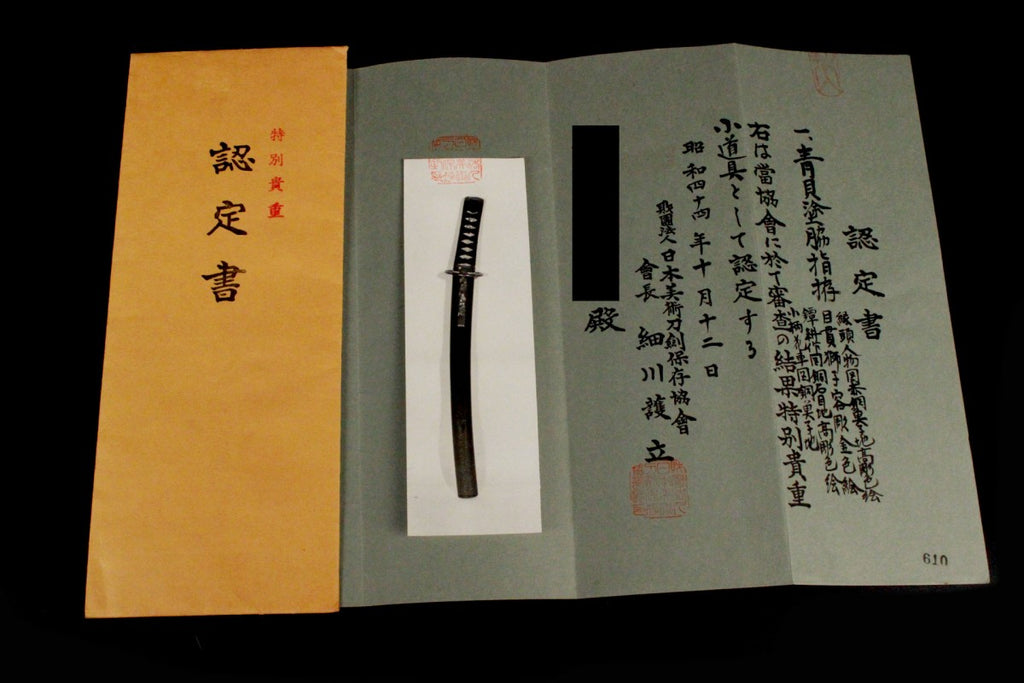 特別貴重
認定書
認定書
一、青貝塗脇指拵
縁頭人物図赤銅魚々地高彫色絵
目貫獅子容彫金色絵
鐔耕作図銅石目地高彫色絵
小柄花車図銅魚子地
右は當協會に於て審査の結果特別貴重
小道具として認定する
昭和四十四年十月十二日
財團法人日本美術刀剣保存協會
會長 細川護立
殿
610